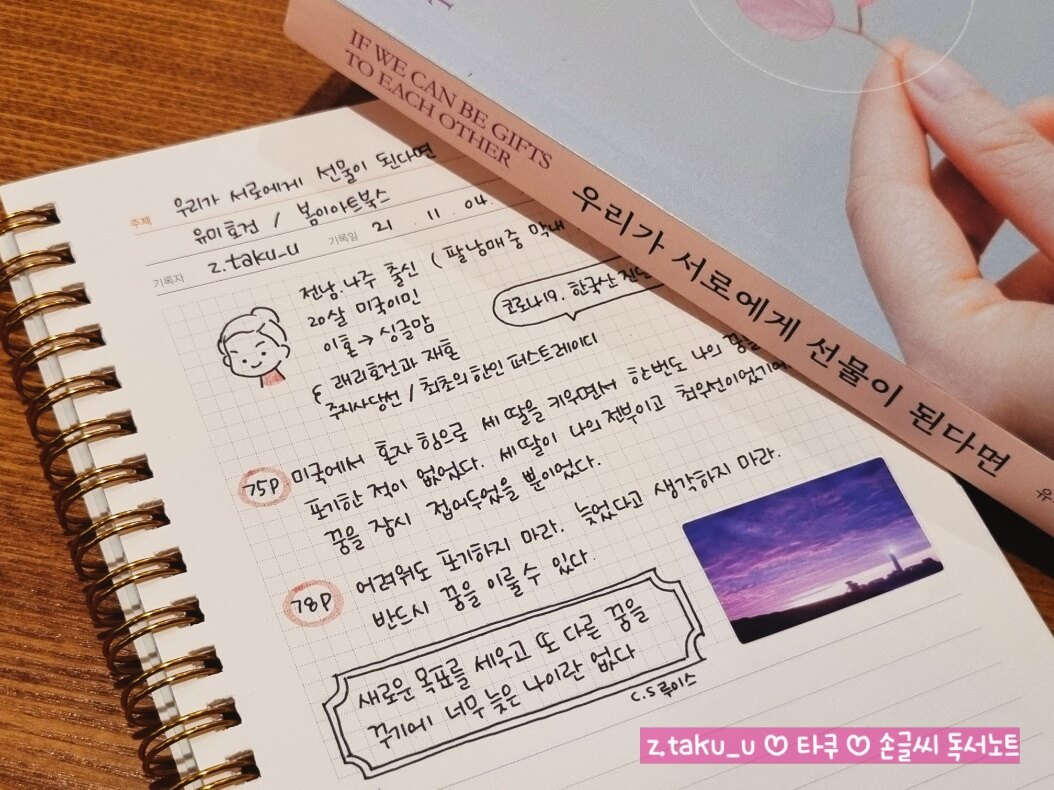 IF WE CAN BE GIFTS
TO EACH OTHER
우리가 서로에게 선물이 된다면
유
주제 우리가 서로에게 선물이 된다면
유미호건 / 봄이아트북스
기록자 z.taku_u 기록일 21 . 11 . 04.
전남.나주 출신 ( 팔남매 중 막내
20살 미국이민
이혼 → 싱글맘
& 래리호건과 재혼
주지사당선 / 최초의 한인 퍼스트레이디
코로나19. 한국산 진단
75P 미국에서 혼자 힘으로 세 딸을 키우면서 한번도 나의 꿈을
포기한 적이 없었다. 세딸이 나의 전부이고 최우선이었기에
꿈을 잠시 접어두었을 뿐이었다.
78P 어려워도 포기하지 마라. 늦었다고 생각하지 마라.
반드시 꿈을 이룰 수 있다.
새로운 목표를 세우고 또 다른 꿈을
꾸기에 너무 늦은 나이란 없다
C.S 루이스
z.taku_u ♡ 타쿠 ♡ 손글씨 독서노트